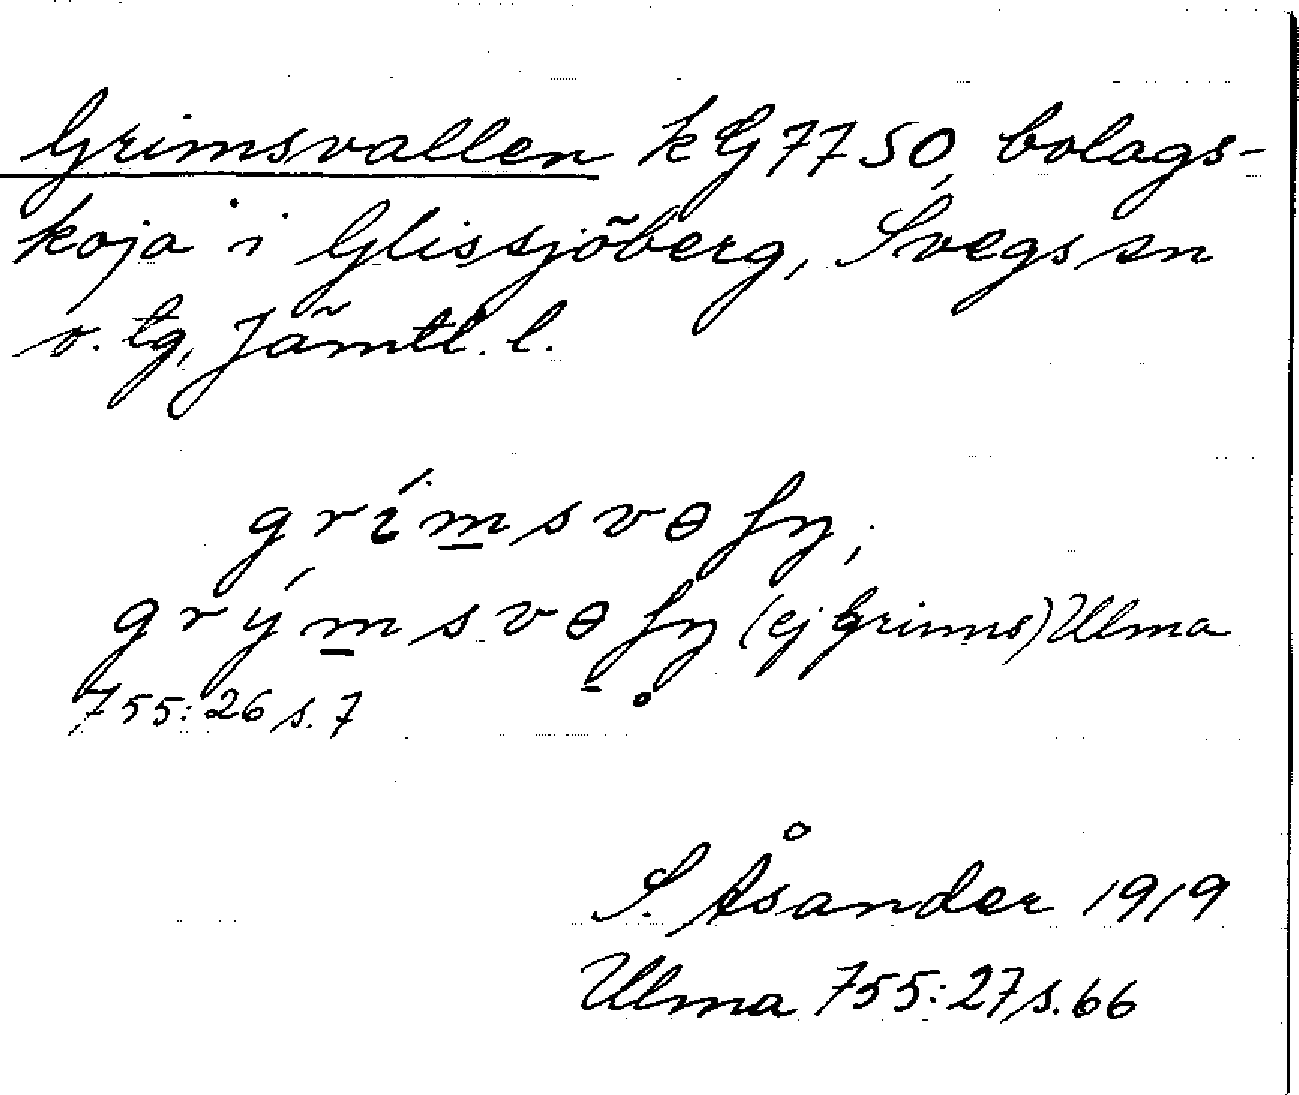 Grimsvallen kG 7750, bolags-
koja i Glissjöberg, Svegs sn
o. tg, Jämtl. l.
grímsvɵſŋ;
grýmsvɵſŋ (ej Grimms) Ulma
755:26 s. 7
S. Åsander 1919
Ulma 755:27 s. 66